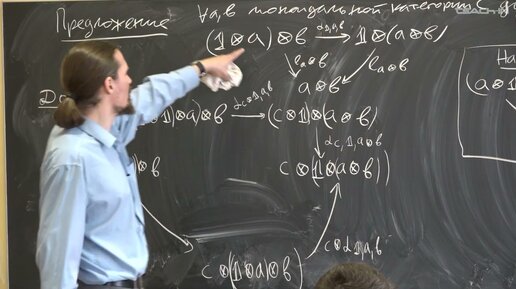 Предложение
∀a,b моноидальной категории C
(1⊗a)⊗b →α1,a,b 1⊗(a⊗b)
ℓa⊗b ℓa⊗b
a⊗b
На
(a⊗1
До
1)⊗a)⊗b →αc⊗1,a,b (c⊗1)⊗(a⊗b)
αc,1,a⊗b
)⊗b c⊗(1⊗(a⊗b))
c⊗α1,a,b
c⊗((1⊗a)⊗b)